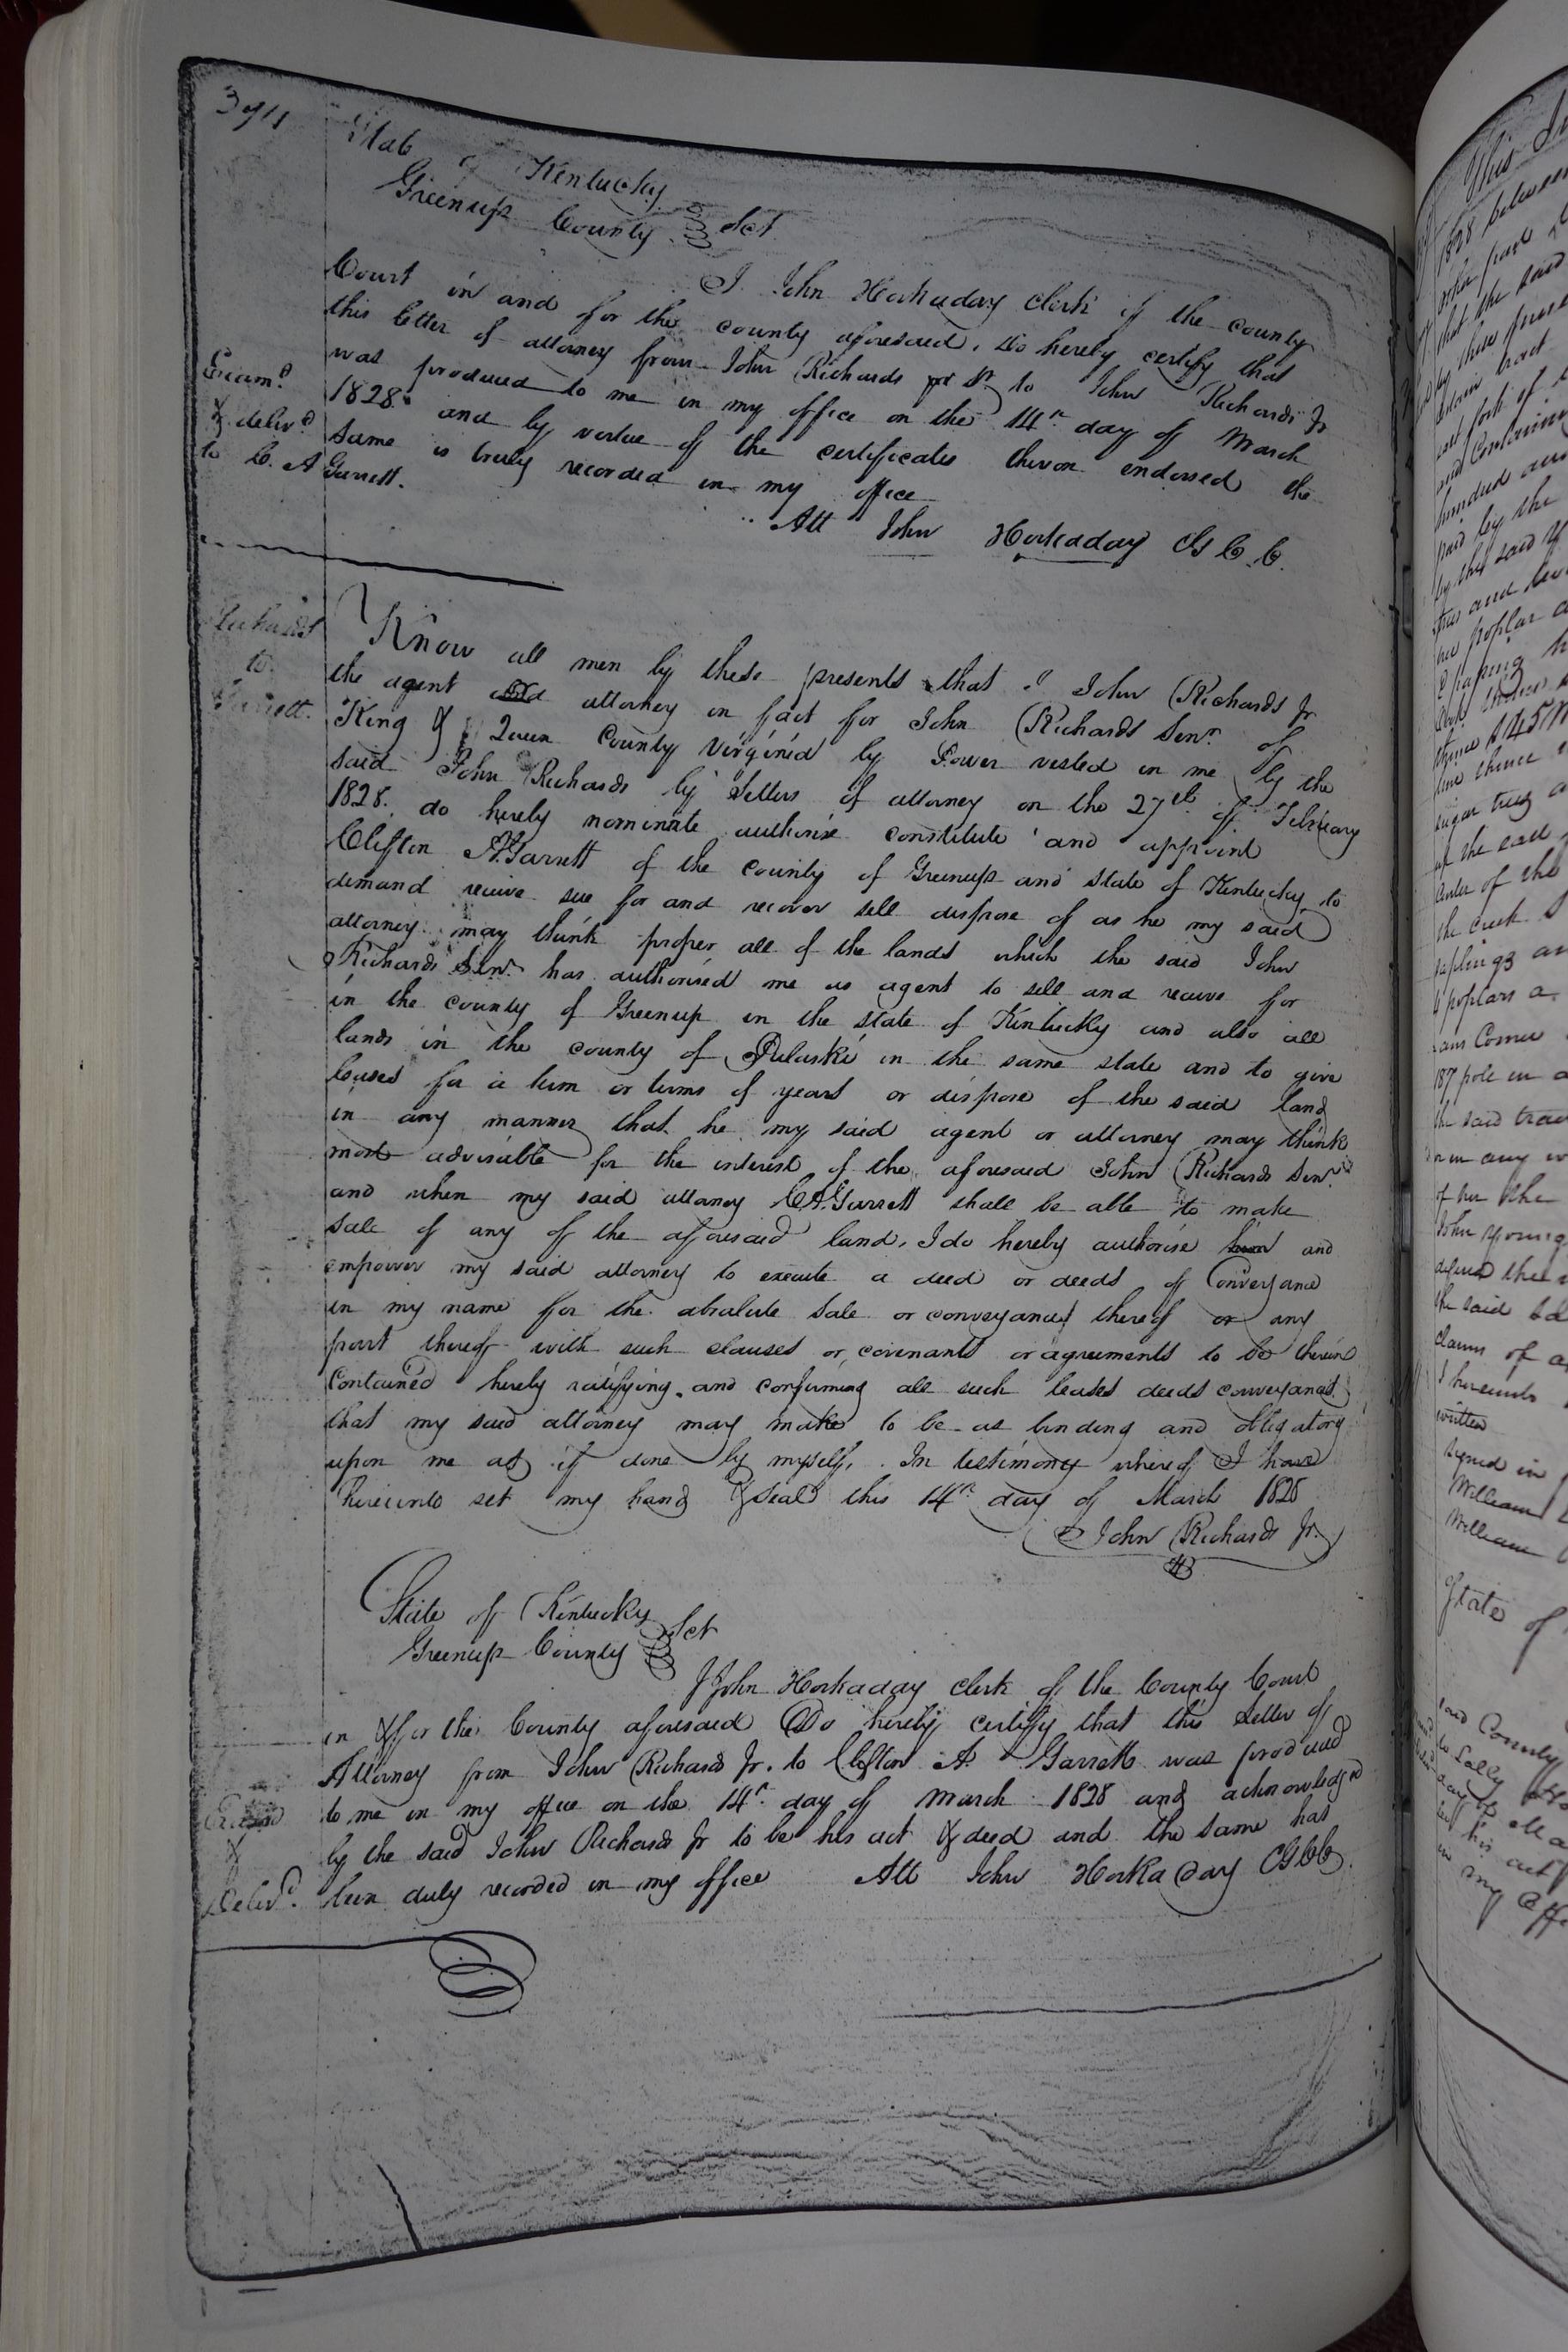 State of Kentucky
Greenup County Sct
I John Hockaday Clerk of the county
Court in and for the county aforesaid, do hereby certify that
this letter of attorney from John Richards Sr to John Richards Jr
was produced to me in my office on the 14th day of March
1828. and by vertue of the certificates theron endorsed the
same is truly recorded in my office
Att John Hockaday C G C C.
Exam.d
& deliv.d
to C. A Garrett.
Richards
to
Garrett.
Know all men by these presents that I John Richards Jr
the agent and attorney in fact for John Richards Senr. of
King & Queen County Virginia by Power vested in me by the
said John Richards by Letters of attorney on the 27th of February
1828. do hereby nominate authorise constitute and appoint
Clifton A. Garrett of the county of Greenup and state of Kentucky to
demand receive sue for and recover sell dispose of as he my said
attorney may think proper all of the lands which the said John
Richards Senr. has authorised me as agent to sell and receive for
in the county of Greenup in the state of Kentucky and also all
lands in the county of Pulaski in the same state and to give
leases for a term or terms of years or dispose of the said land
in any manner that he my said agent or attorney may think
most advisable for the interest of the aforesaid John Richards Senr.
and when my said attorney C. A. Garrett shall be able to make
sale of any of the aforesaid land, I do hereby authorise and
empower my said attorney to execute a deed or deeds of Conveyance
in my name for the absolute sale or conveyance thereof or any
part thereof with such clauses or covenants or agreements to be therein
Contained hereby ratifying and confirming all such leases deeds conveyances
that my said attorney may make to be as binding and obligatory
upon me as if done by myself. In testimony whereof I have
hereunto set my hand & seal this 14th day of March 1828
John Richards Jr.
State of Kentucky
Greenup County Sct
I John Hockaday clerk of the County Court
in & for the County aforesaid Do hereby certify that this Letter of
Attorney from John Richards Jr. to Clifton A. Garrett was produced
to me in my office on the 14th day of March 1828 and acknowledged
by the said John Richards Jr to be his act & deed and the same has
been duly recorded in my office Att John Hockaday CGCC.
Exam
&
Deliv.d
This
1828 between
other part
that the said
by these
hundred and
paid by the
by the said
poplar
thence S 45
line thence
sugar tree
up the east
of the
the creek
saplings an
4 poplars a
Corner
187 pole
the said
or in any
of the
John Young
defend
the said
claims of
I hereunto
written
signed in
William
William
State of
said County
to Sally
his act
in my offi